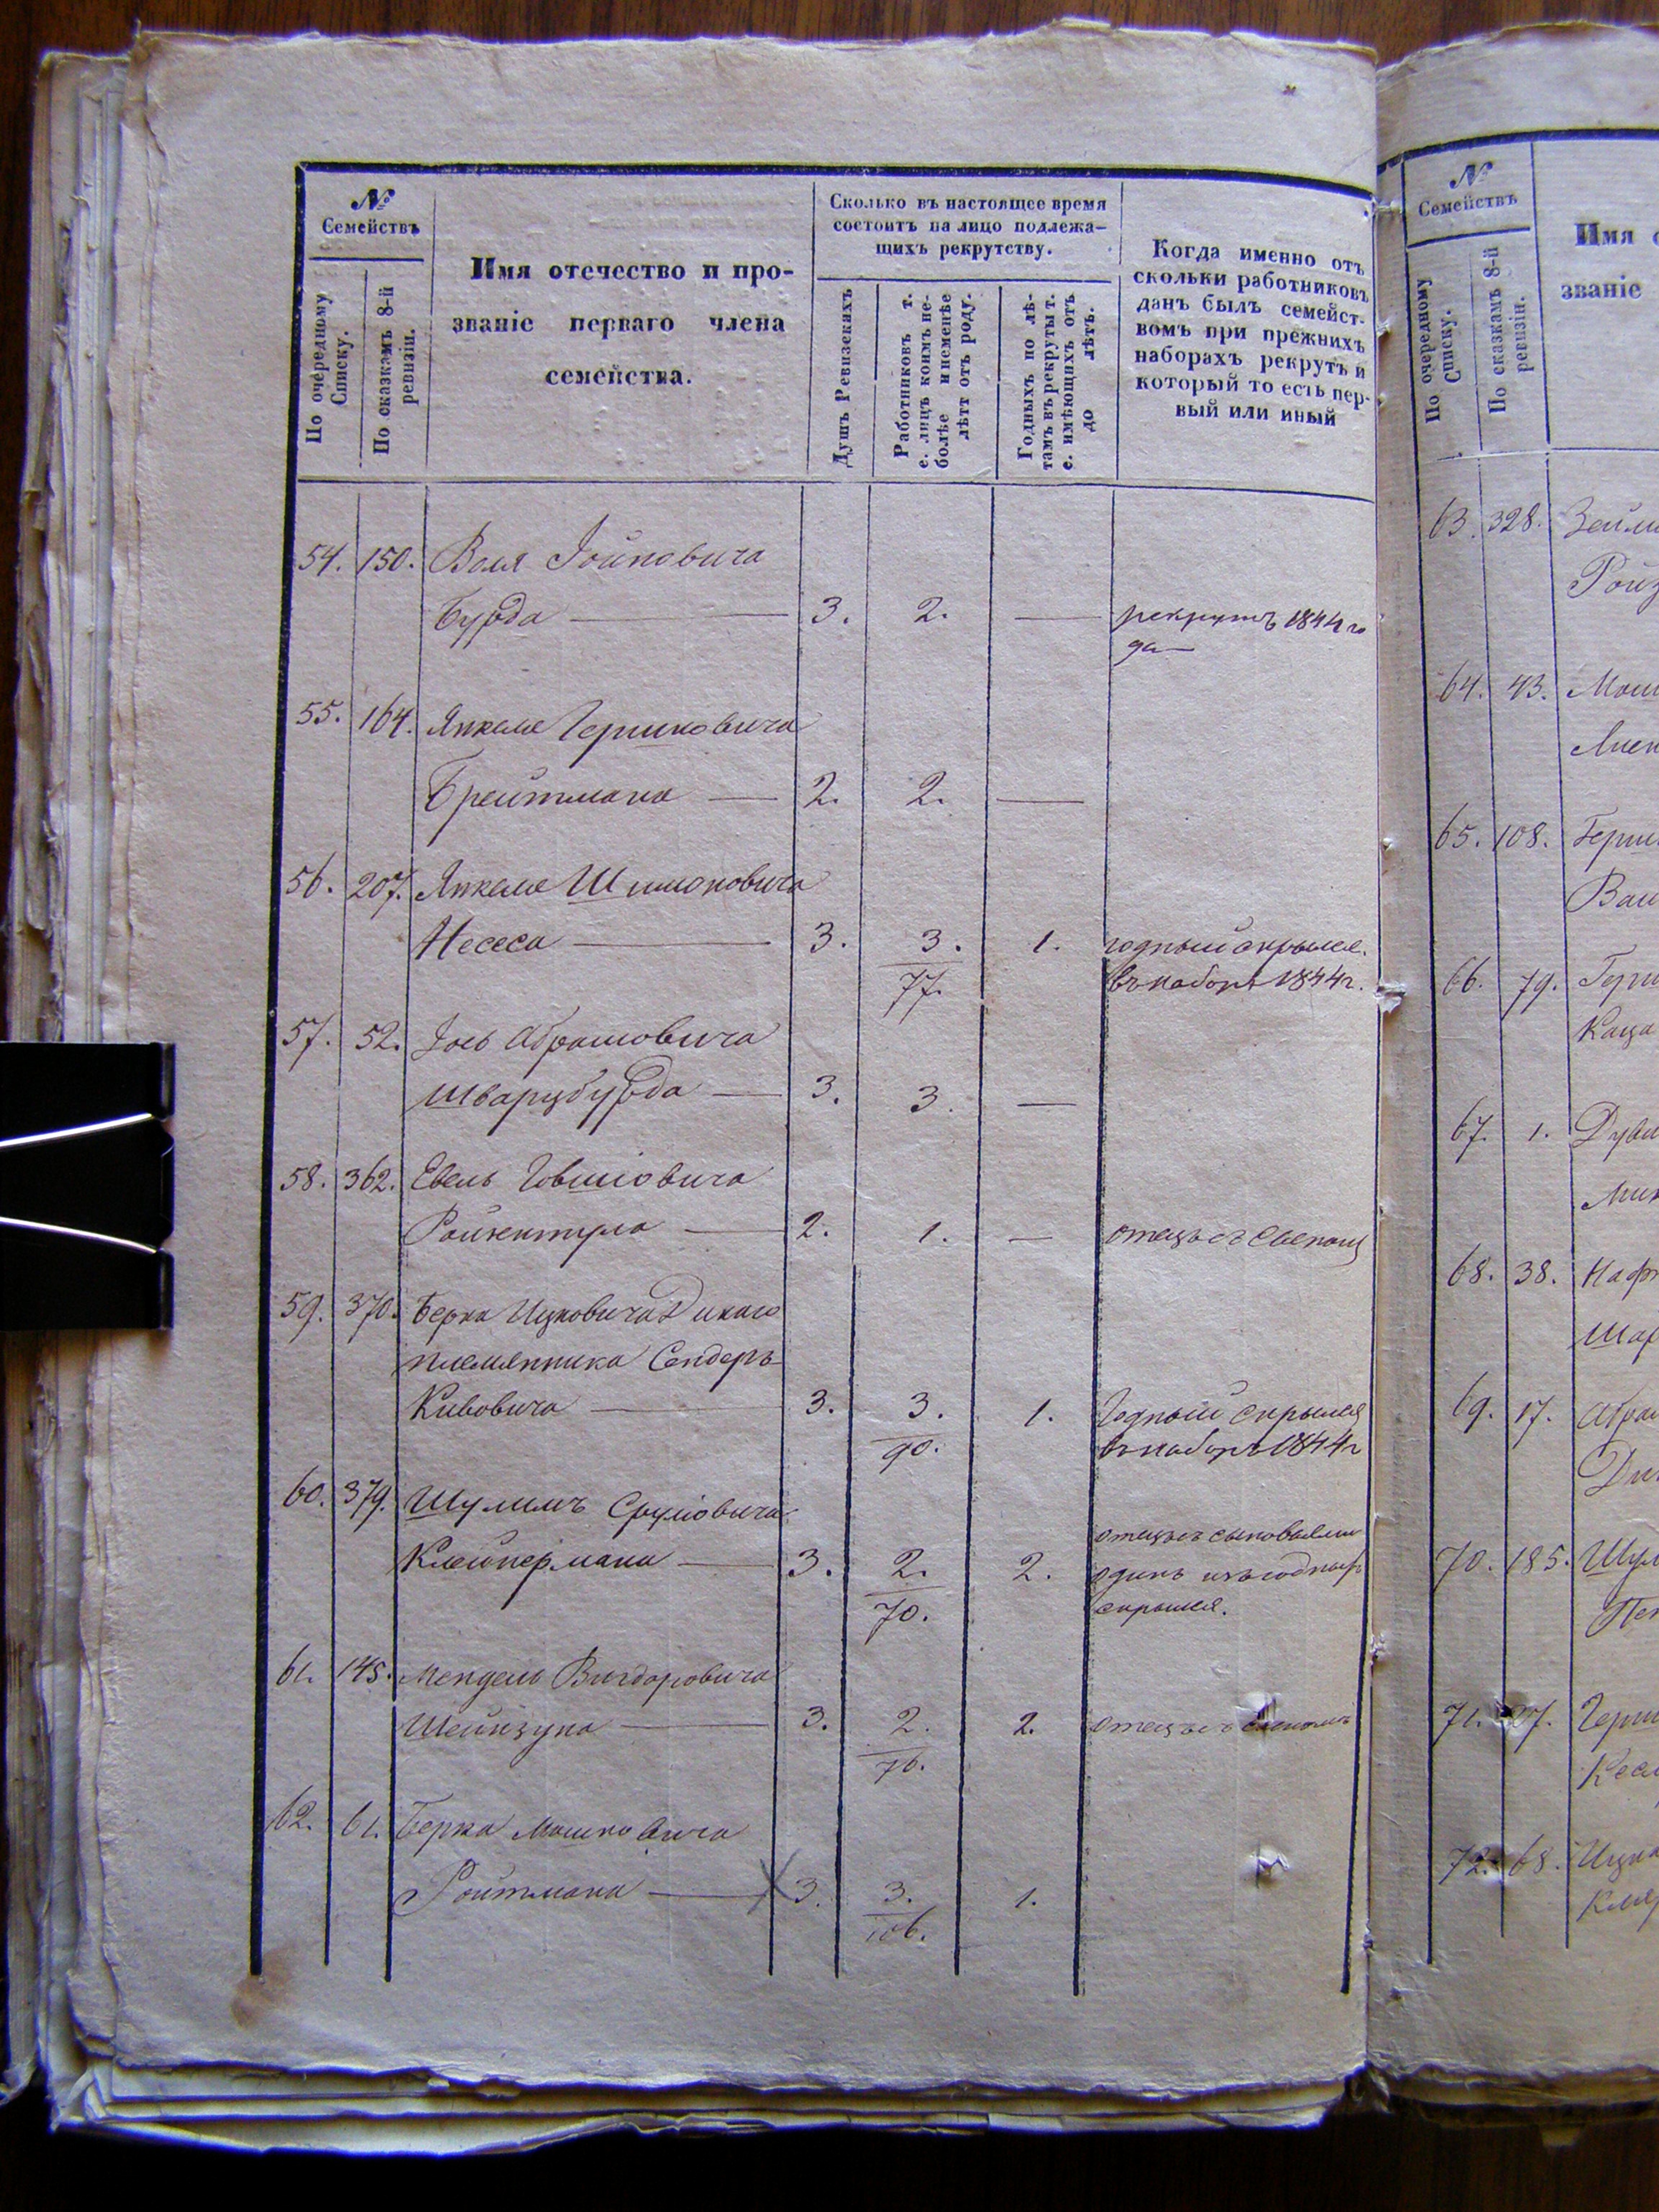 №
Семействъ
По очередному Списку.
По сказкамъ 8-й ревизіи.
Имя отечество и про-
званіе перваго члена
семейства.
Сколько въ настоящее время
состоитъ на лицо подлежа-
щихъ рекрутству.
Душъ Ревизскихъ
Работниковъ т.
е. лицъ коимъ не-
болѣе и неменѣе
лѣтъ отъ роду.
Годныхъ по лѣ-
тамъ въ рекруты т.
е. имѣющихъ отъ
до лѣтъ.
Когда именно отъ
скольки работниковъ
данъ былъ семейст-
вомъ при прежнихъ
наборахъ рекрутъ и
который то есть пер-
вый или иный
54. 150. Воля Іойновича
Бурда — 3. 2. — рекрутъ 1844 го
да —
55. 164. Янкеля Гершковича
Брейтмана — 2. 2. —
56. 207. Янкеля Шимоновича
Несеса — 3. 3. 1. годный скрылся.
77. въ наборъ 1844 г.
57. 52. Іось Абрамовича
Шварцбурда — 3. 3. —
58. 362. Евель Говшіовича
— 2. 1. — отецъ съ
59. 370. Берка Ицковича Дикаго
племянника Сендеръ
Кивовича — 3. 3. 1. Годный скрылся
90. въ наборъ 1844 г
60. 379. Шулимъ Сруліовича
отецъ съ сыновьями
Клейнермана — 3. 2. 2. одинъ изъ годныхъ
70. скрылся.
61. 145. Мендель Вигдоровича
Шейнзупа — 3. 2. 2. отецъ съ
76.
62. 61. Берка Мошковича
Ройтмана — 3. 3. 1.
106.
№
Семействъ
По очередному Списку.
По сказкамъ 8-й ревизіи.
Имя о
званіе
63. 328. Зейли
Ройз
64. 43. Мош
65. 108. Герш
Ваи
66. 79. Герш
Каца
67. 1. Дуви
68. 38. Нафт
Шар
69. 17. Абра
70. 185. Шул
71. Герш
72. 68. Ицко